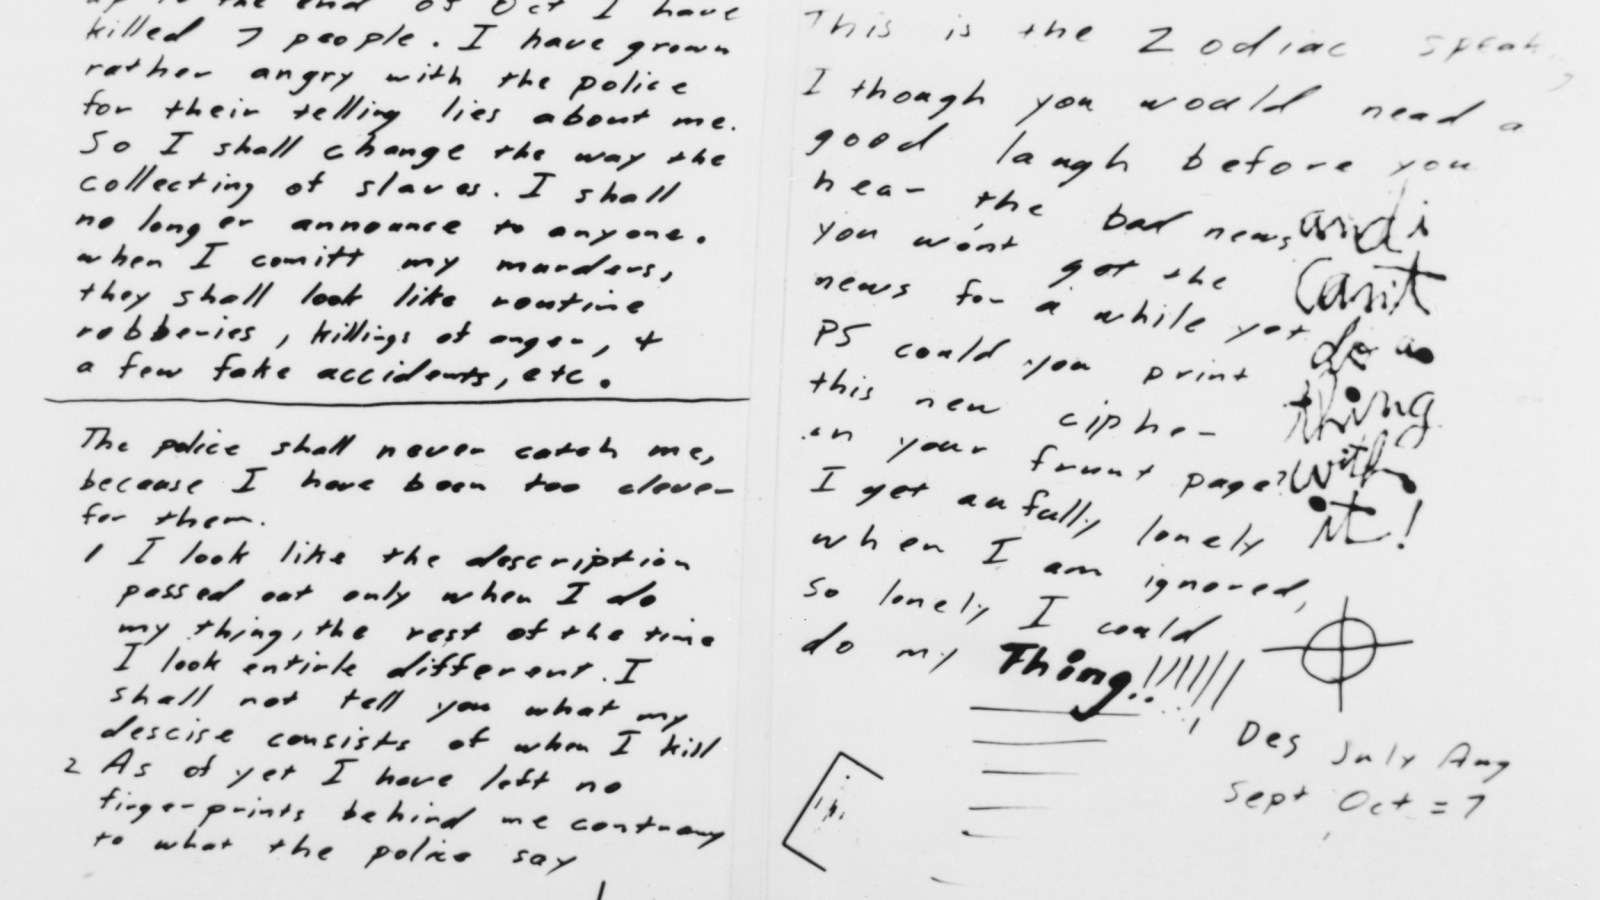 up to the end of Oct I have
killed 7 people. I have grown
rather angry with the police
for their telling lies about me.
So I shall change the way the
collecting of slaves. I shall
no longer announce to anyone.
when I comitt my murders,
they shall look like routine
robberies, killings of anger, +
a few fake accidents, etc.
The police shall never catch me,
because I have been too clever
for them.
1 I look like the description
passed out only when I do
my thing, the rest of the time
I look entirle different. I
shall not tell you what my
descise consists of when I kill
2 As of yet I have left no
fingerprints behind me contrary
to what the police say
This is the Zodiac speaking
I though you would nead a
good laugh before you
hear the bad news
you won't get the
news for a while yet
PS could you print
this new cipher
on your frunt page?
I get aufully lonely
when I am ignored,
so lonely I could
do my Thing!!!!!!
and i
can't
do a
thing
with
it!
Des July Aug
Sept Oct = 7